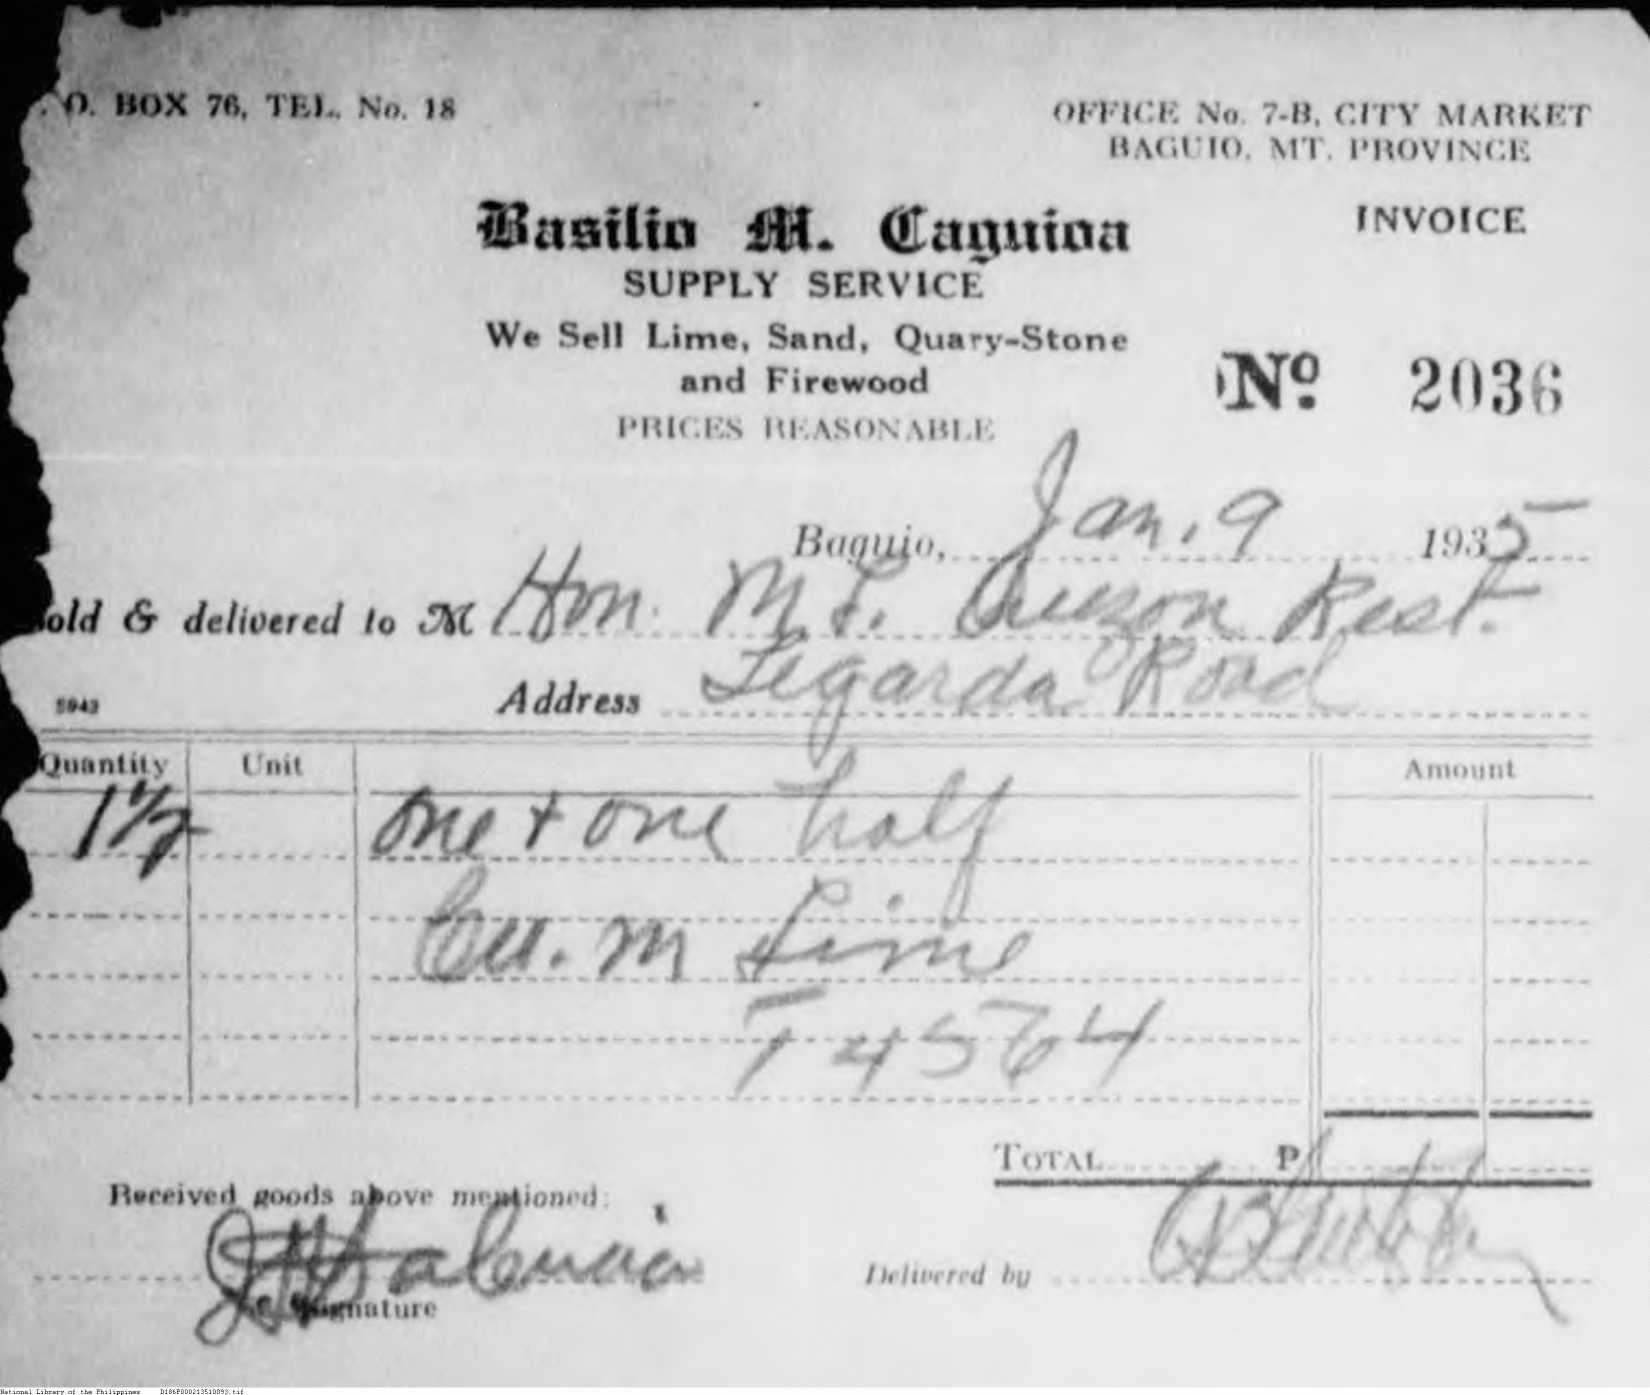 . O. BOX 76, TEL. No. 18
OFFICE No. 7-B, CITY MARKET
BAGUIO, MT. PROVINCE
Basilio M. Caguioa
INVOICE
SUPPLY SERVICE
We Sell Lime, Sand, Quary-Stone
and Firewood
No. 2036
PRICES REASONABLE
Baguio, Jan. 9 1935
old & delivered to M Hon. M. L. Quezon Rest.
Address Legarda Road
5942
Quantity Unit Amount
1 1/2 One + one half
Cu. M Lime
T 4564
TOTAL P
Received goods above mentioned:
Delivered by
Signature
National Library of the Philippines D186P000213510093.tif